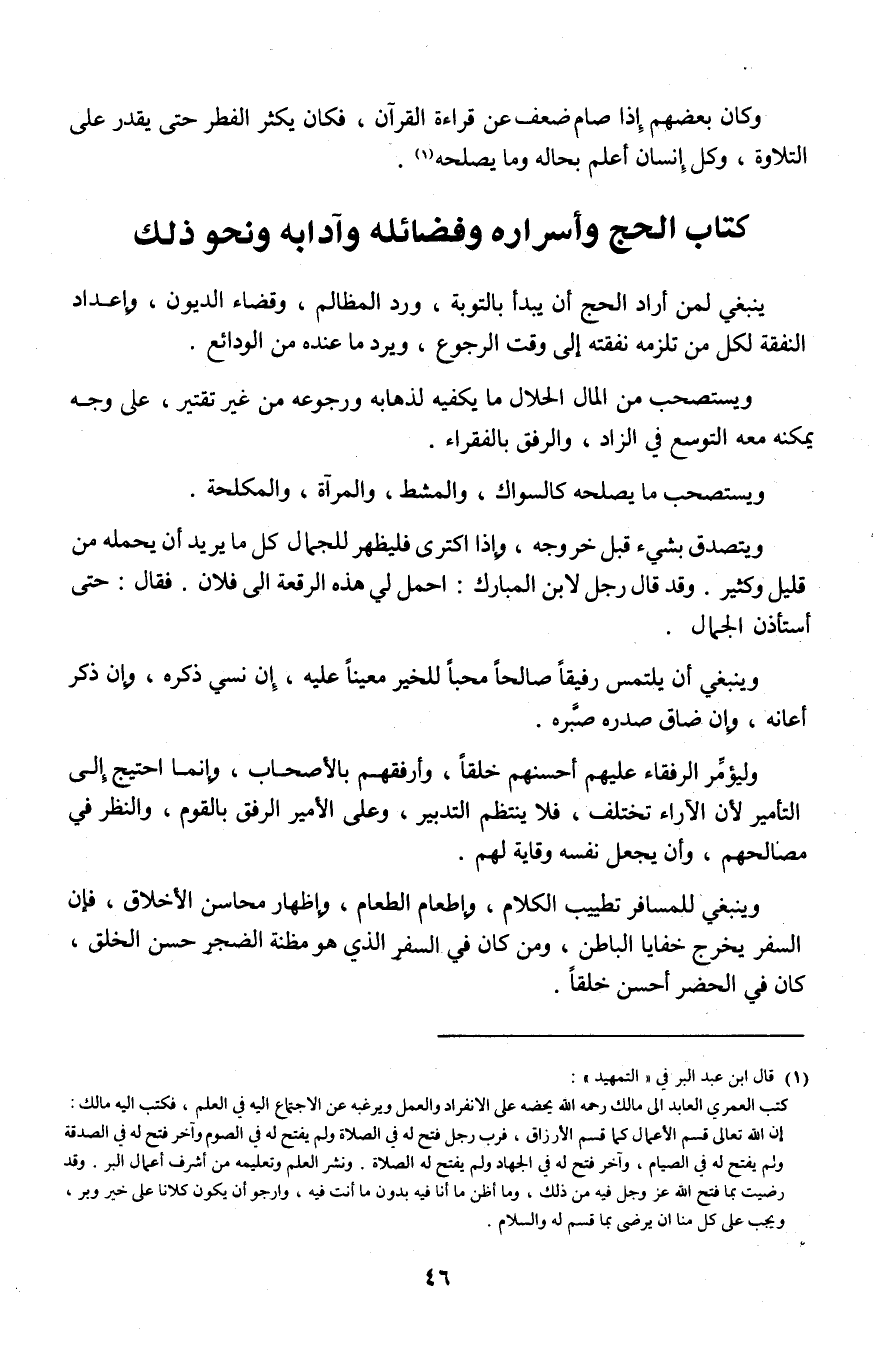 وكان بعضهم إذا صام ضعف عن قراءة القرآن ، فكان يكثر الفطر حتى يقدر على
التلاوة ، وكل إنسان أعلم بحاله وما يصلحه(١) .
كتاب الحج وأسراره وفضائله وآدابه ونحو ذلك
ينبغي لمن أراد الحج أن يبدأ بالتوبة ، ورد المظالم ، وقضاء الديون ، وإعداد
النفقة لكل من تلزمه نفقته إلى وقت الرجوع ، ويرد ما عنده من الودائع .
ويستصحب من المال الحلال ما يكفيه لذهابه ورجوعه من غير تقتير ، على وجه
يمكنه معه التوسع في الزاد ، والرفق بالفقراء .
ويستصحب ما يصلحه كالسواك ، والمشط ، والمرآة ، والمكلحة .
ويتصدق بشيء قبل خروجه ، وإذا اكترى فليظهر للجمال كل ما يريد أن يحمله من
قليل وكثير . وقد قال رجل لابن المبارك : احمل لي هذه الرقعة الى فلان . فقال : حتى
أستأذن الجمال .
وينبغي أن يلتمس رفيقاً صالحاً محباً للخير معيناً عليه ، إن نسي ذكره ، وإن ذكر
أعانه ، وإن ضاق صدره صبَّره .
وليؤمِّر الرفقاء عليهم أحسنهم خلقاً ، وأرفقهم بالأصحاب ، وإنما احتيج إلى
التأمير لأن الآراء تختلف ، فلا ينتظم التدبير ، وعلى الأمير الرفق بالقوم ، والنظر في
مصالحهم ، وأن يجعل نفسه وقاية لهم .
وينبغي للمسافر تطييب الكلام ، وإطعام الطعام ، وإظهار محاسن الأخلاق ، فإن
السفر يخرج خفايا الباطن ، ومن كان في السفر الذي هو مظنة الضجر حسن الخلق ،
كان في الحضر أحسن خلقاً .
(١) قال ابن عبد البر في « التمهيد » :
كتب العمري العابد الى مالك رحمه الله يحضه على الانفراد والعمل ويرغبه عن الاجتماع اليه في العلم ، فكتب اليه مالك :
إن الله تعالى قسم الأعمال كما قسم الأرزاق ، فرب رجل فتح له في الصلاة ولم يفتح له في الصوم وآخر فتح له في الصدقة
ولم يفتح له في الصيام ، وآخر فتح له في الجهاد ولم يفتح له الصلاة . ونشر العلم وتعليمه من أشرف أعمال البر . وقد
رضيت بما فتح الله عز وجل فيه من ذلك ، وما أظن ما أنا فيه بدون ما أنت فيه ، وارجو أن يكون كلانا على خير وبر ،
ويجب على كل منا ان يرضى بما قسم له والسلام .
٤٦